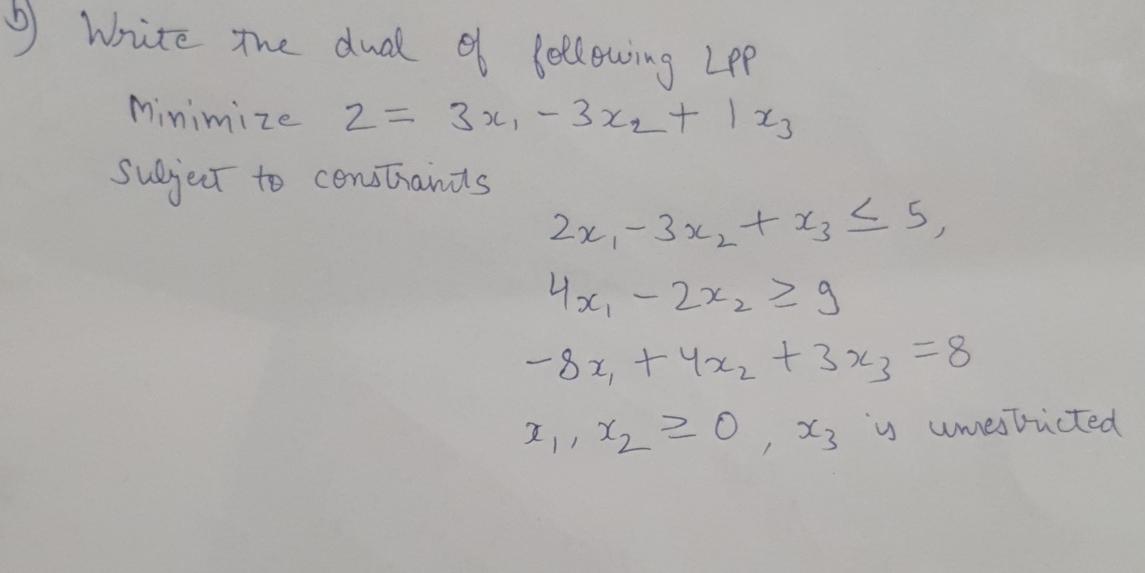 b) Write the dual of following LPP
Minimize Z = 3x₁ - 3x₂ + 1x₃
Subject to constraints
2x₁ - 3x₂ + x₃ ≤ 5,
4x₁ - 2x₂ ≥ 9
-8x₁ + 4x₂ + 3x₃ = 8
x₁, x₂ ≥ 0, x₃ is unrestricted